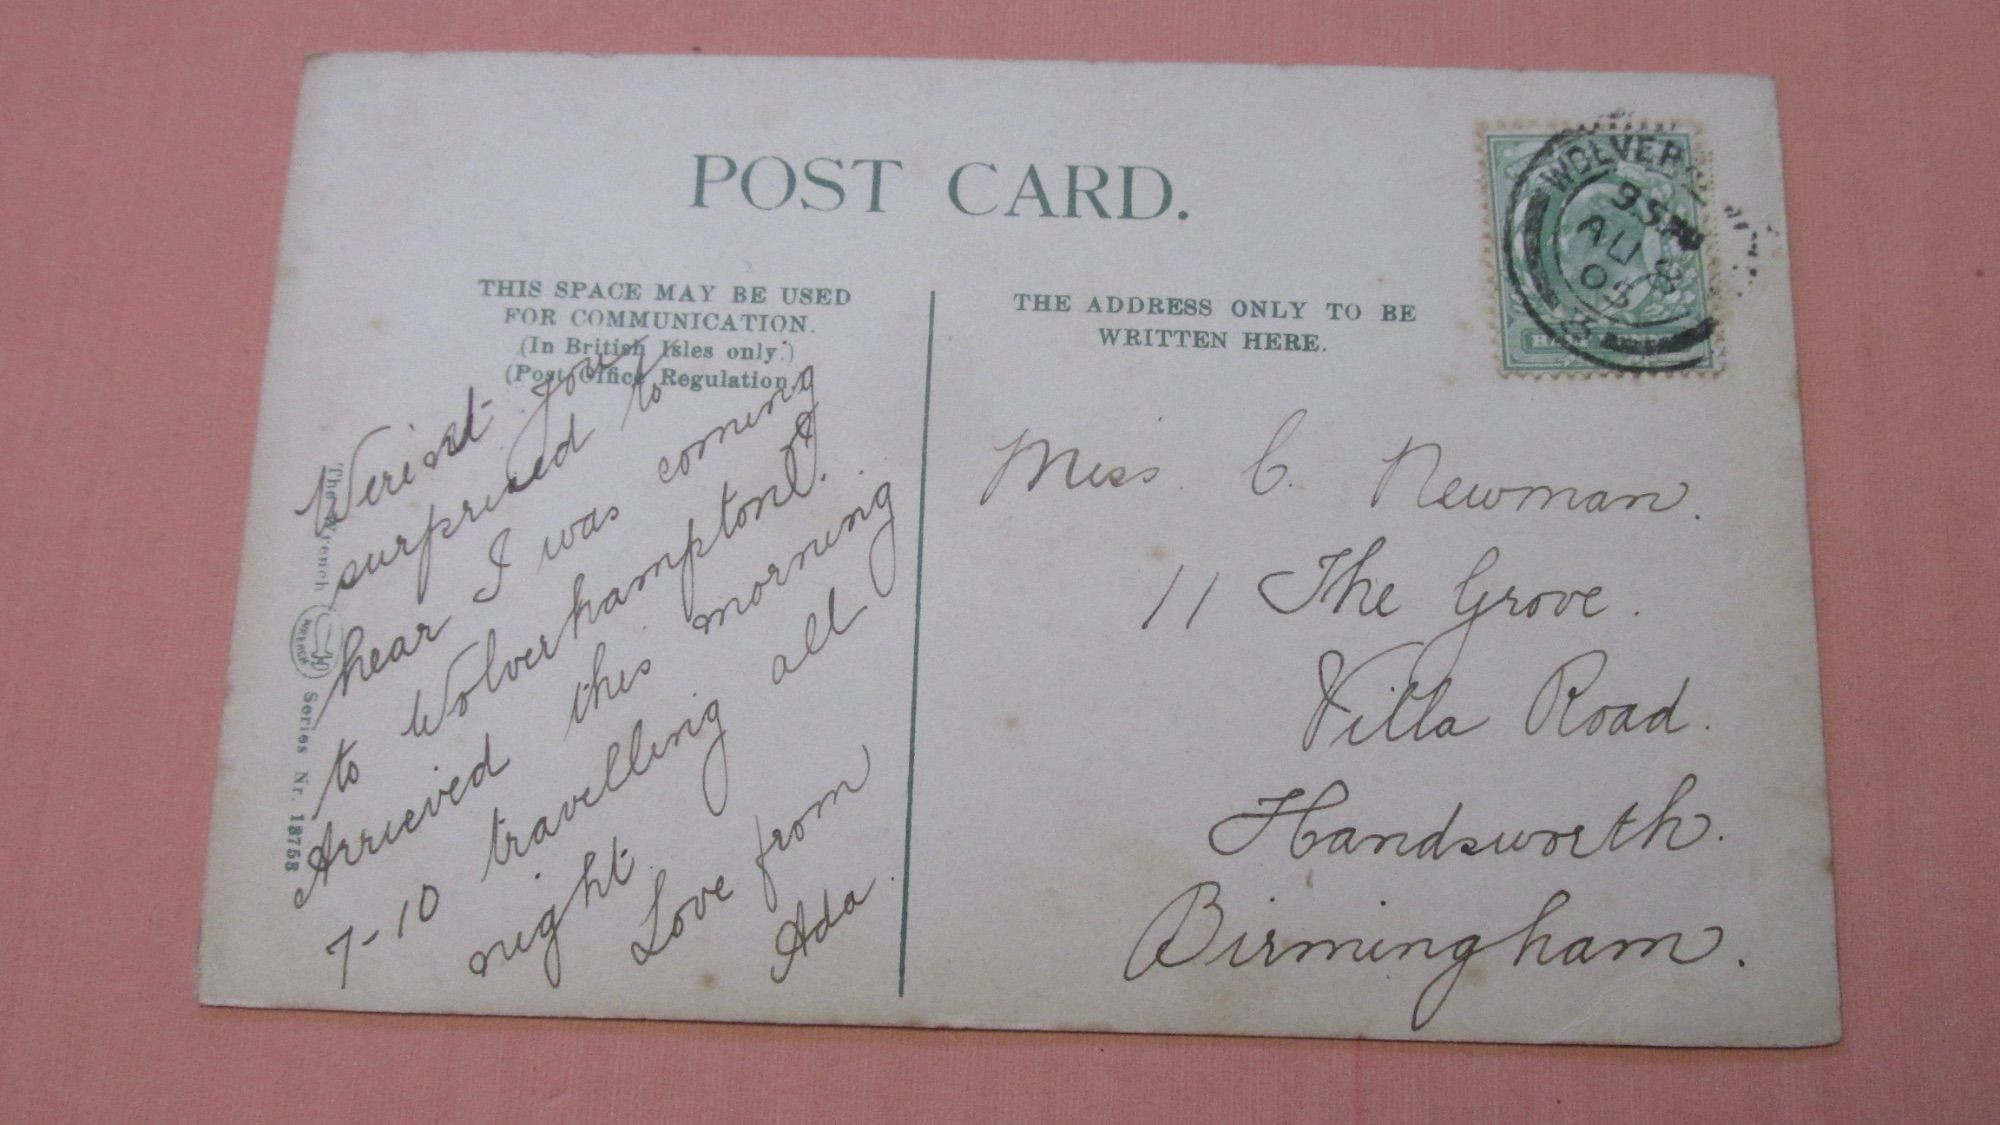 POST CARD.
THIS SPACE MAY BE USED
FOR COMMUNICATION.
(In British Isles only.)
(Post Office Regulation.)
THE ADDRESS ONLY TO BE
WRITTEN HERE.
you
surprised to
hear I was coming
to Wolverhampton.
Arrieved this morning
7-10 travelling all
night.
Love from
Ada.
Miss. C. Newman.
11 The Grove.
Villa Road.
Handsworth.
Birmingham.
The Wrench
WRENCH
Series Nr. 18758
WOLVER
AU 8